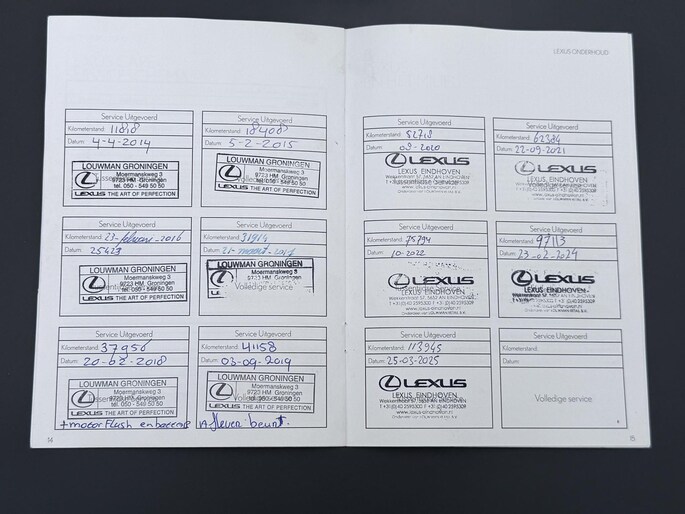 LEXUS ONDERHOUD
Service Uitgevoerd
Kilometerstand: 11818
Datum: 4-4-2014
LOUWMAN GRONINGEN
Moermanskweg 3
9723 HM Groningen
tel. 050 - 549 50 50
LEXUS THE ART OF PERFECTION
Service Uitgevoerd
Kilometerstand: 18408
Datum: 5-2-2015
LOUWMAN GRONINGEN
Moermanskweg 3
9723 HM Groningen
tel. 050 - 549 50 50
LEXUS THE ART OF PERFECTION
Service Uitgevoerd
Kilometerstand: 23-februari-2016
Datum: 25423
LOUWMAN GRONINGEN
Moermanskweg 3
9723 HM Groningen
tel. 050 - 549 50 50
LEXUS THE ART OF PERFECTION
Service Uitgevoerd
Kilometerstand: 31914
Datum: 21-maart-2017
LOUWMAN GRONINGEN
Moermanskweg 3
9723 HM Groningen
Volledige service
Service Uitgevoerd
Kilometerstand: 37956
Datum: 20-02-2018
LOUWMAN GRONINGEN
Moermanskweg 3
9723 HM Groningen
tel. 050 - 549 50 50
LEXUS THE ART OF PERFECTION
Service Uitgevoerd
Kilometerstand: 41158
Datum: 03-09-2019
LOUWMAN GRONINGEN
Moermanskweg 3
9723 HM Groningen
tel. 050 - 549 50 50
LEXUS THE ART OF PERFECTION
+ motor flush en
14
Service Uitgevoerd
Kilometerstand: 52718
Datum: 09-2020
LEXUS
LEXUS EINDHOVEN
Service Uitgevoerd
Kilometerstand: 62384
Datum: 22-09-2021
LEXUS
LEXUS EINDHOVEN
Volledige service
Service Uitgevoerd
Kilometerstand: 75794
Datum: 10-2022
LEXUS
LEXUS EINDHOVEN
Service Uitgevoerd
Kilometerstand: 97113
Datum: 23-02-2024
LEXUS
LEXUS EINDHOVEN
Service Uitgevoerd
Kilometerstand: 113945
Datum: 25-03-2025
LEXUS
LEXUS EINDHOVEN
Service Uitgevoerd
Kilometerstand:
Datum:
Volledige service
15